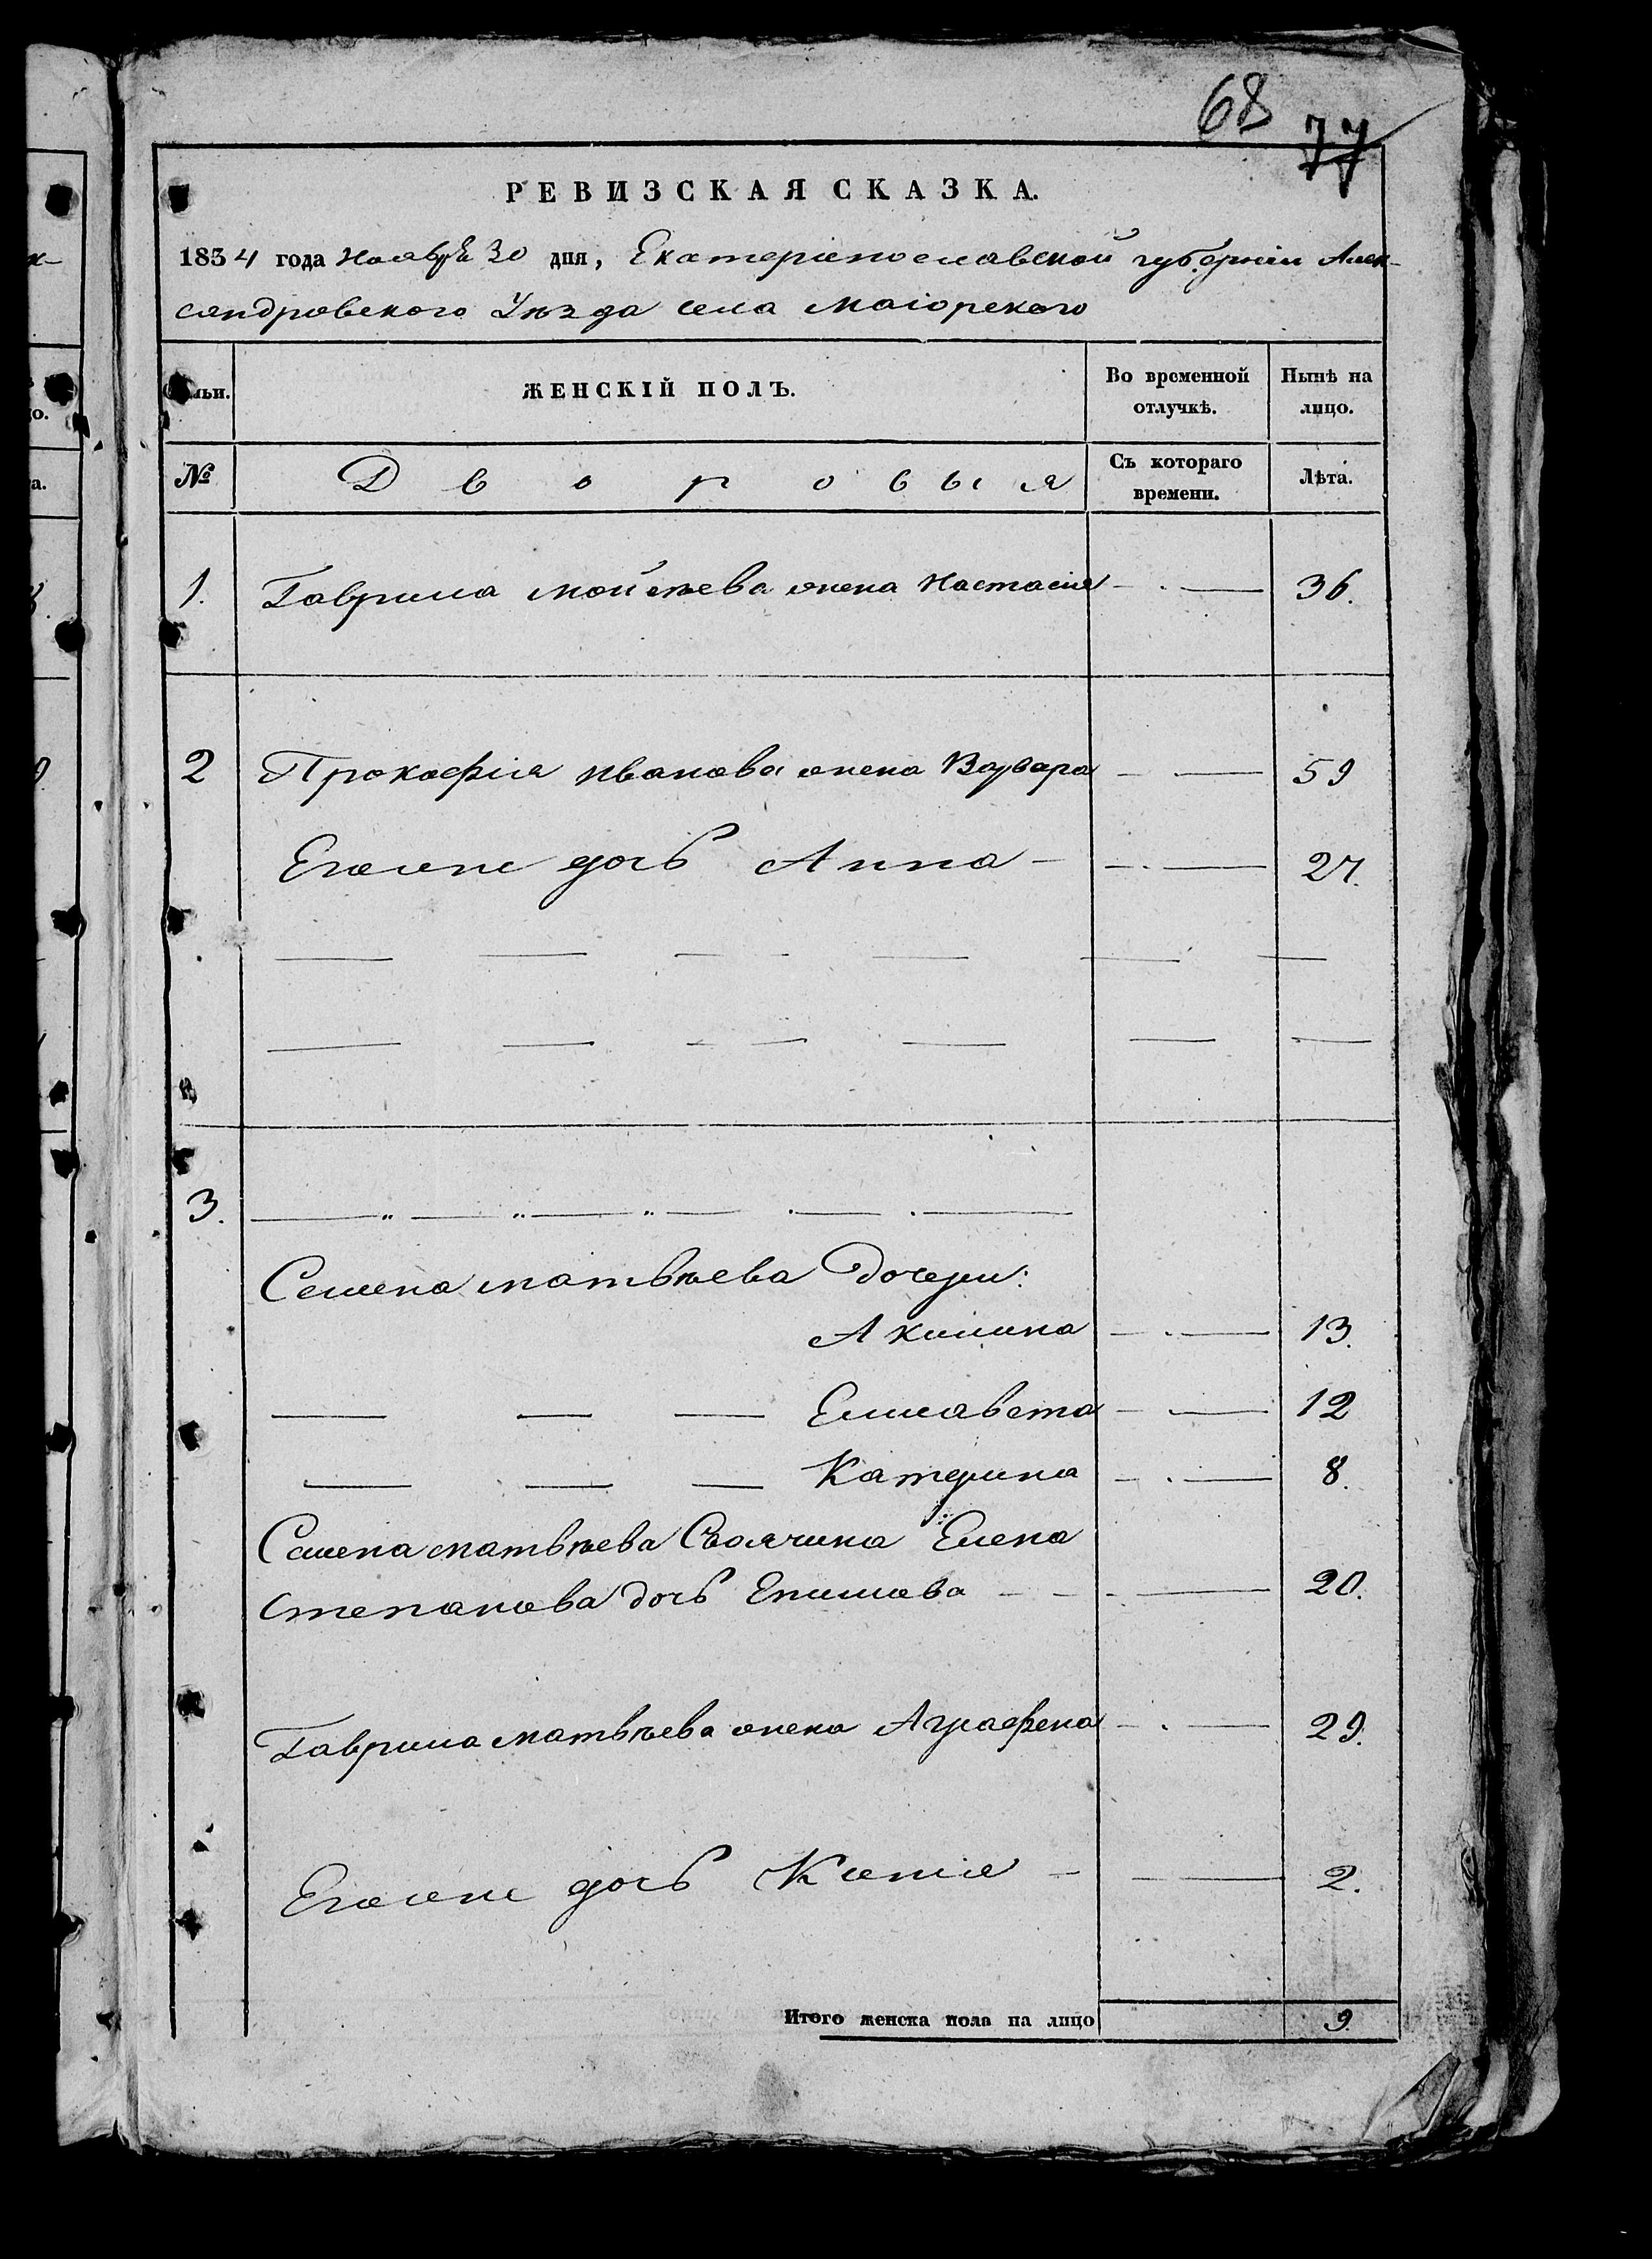 68
77
РЕВИЗСКАЯ СКАЗКА.
1854 года Ноября 30 дня, Екатеринославской губернiи Алек-
сандровскаго Уѣзда села Маiорскаго
ЖЕНСКIЙ ПОЛЪ.
Во временной отлучкѣ.
Нынѣ на лицо.
№
Дворовыя
Съ котораго времени.
Лѣта.
1. Гаврила Мойсѣева жена Настасiя — . — 36.
2 Прокофiя Иванова жена Варвара — . — 59
Егоже дочь Анна — — . — 27.
3.
Семена Матвѣева Дочери:
Акилина — . — 13.
Елисавета — . — 12
Катерина — . — 8.
Семена Матвѣева Своячина Елена
Степанова дочь — — . — 20.
Гаврила Матвѣева жена Аграфена — . — 29.
Дочь Ксенiя — — 2.
Итого женска пола на лицо 9.